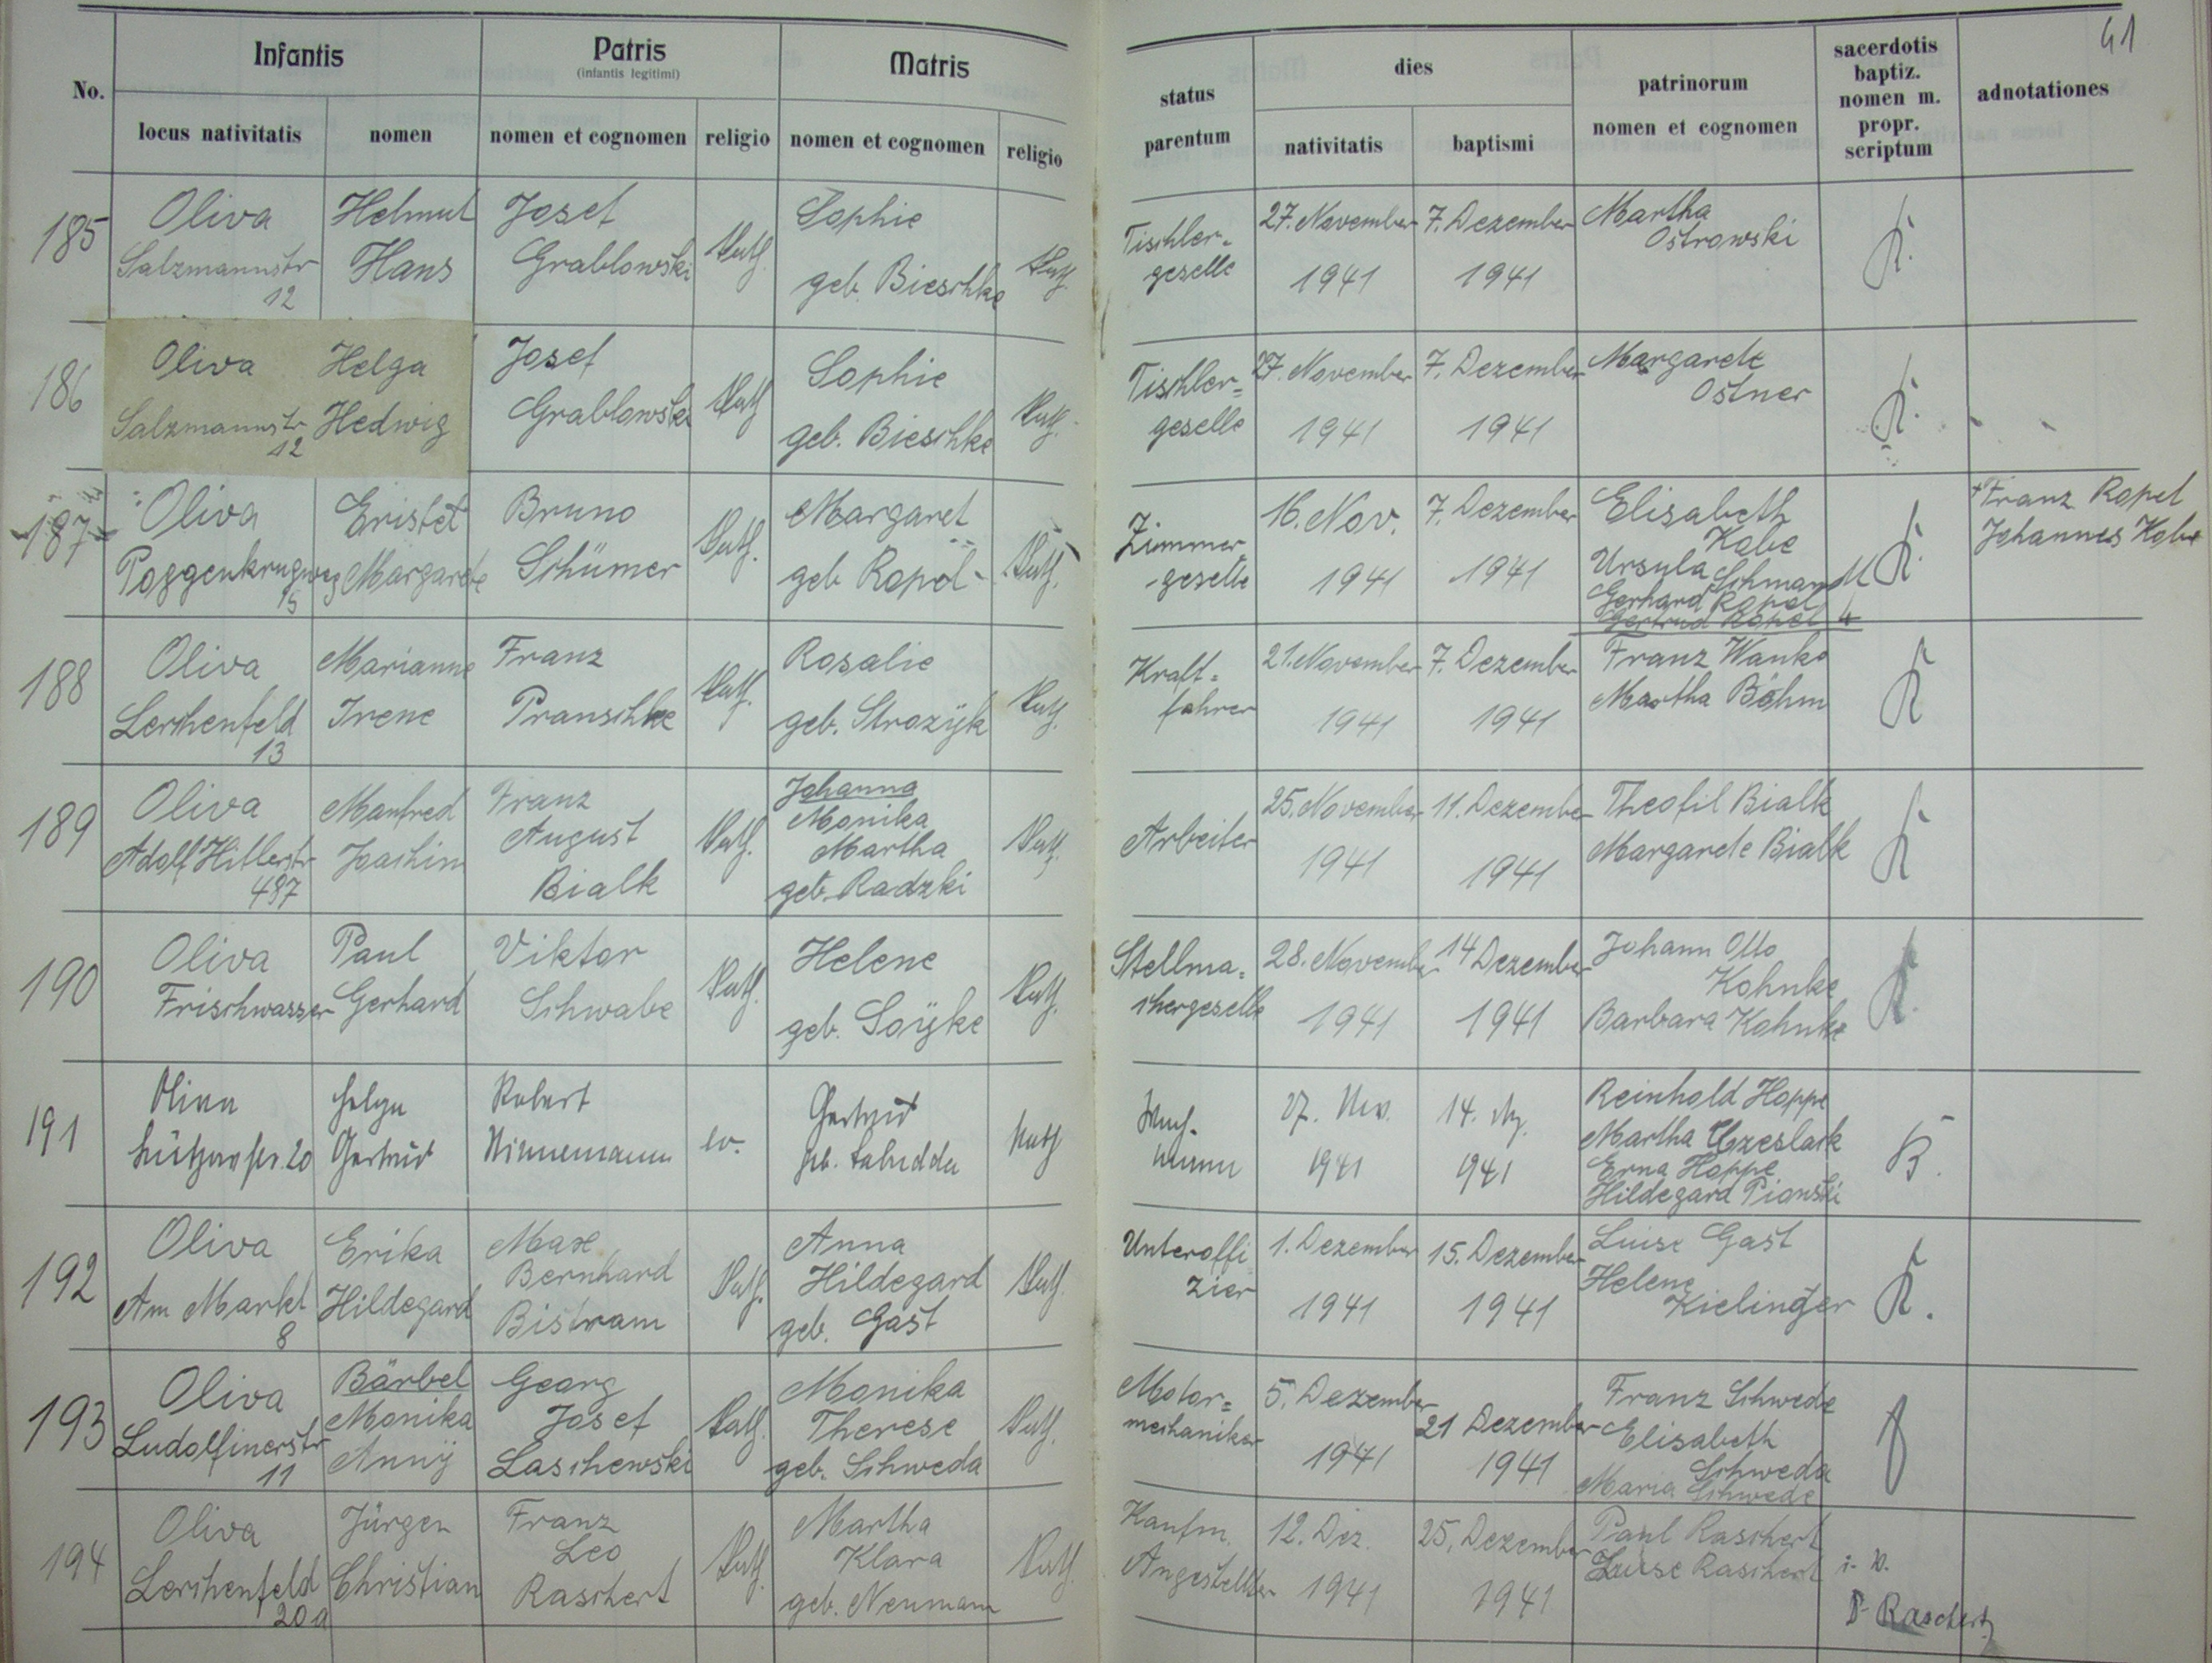 41
No.
Infantis
locus nativitatis
nomen
Patris
(infantis legitimi)
nomen et cognomen
religio
Matris
nomen et cognomen
religio
status
parentum
dies
nativitatis
baptismi
patrinorum
nomen et cognomen
sacerdotis
baptiz.
nomen m.
propr.
scriptum
adnotationes
185
Oliva
Salzmannstr
12
Helmut
Hans
Josef
Grablowski
kath.
Sophie
geb. Bieschke
kath.
Tischler=
geselle
27. November
1941
7. Dezember
1941
Martha
Ostrowski
K.
186
Oliva
Salzmannstr
12
Helga
Hedwig
Josef
Grablowski
kath
Sophie
geb. Bieschke
kath.
Tischler=
geselle
27. November
1941
7. Dezember
1941
Margarete
Ostner
K.
187
Oliva
Poggenkrugweg
15
Margarete
Bruno
Schümer
kath.
Margaret
geb Ropel
kath.
Zimmer
-geselle
16. Nov.
1941
7. Dezember
1941
Elisabeth
Kabe
Ursula
Gerhard Ropel
Gertrud Ropel
K.
Franz Ropel
Johannes Kabe
188
Oliva
Lerchenfeld
13
Marianne
Irene
Franz
Pranschke
kath.
Rosalie
geb. Strozÿk
kath.
Kraft=
fahrer
21. November
1941
7. Dezember
1941
Franz Wanke
Martha Böhm
K
189
Oliva
Adolf Hitlerstr
487
Manfred
Joachim
Franz
August
Bialk
kath.
Johanna
Monika
Martha
geb. Radzki
kath.
Arbeiter
25. November
1941
11. Dezember
1941
Theofil Bialk
Margarete Bialk
K
190
Oliva
Frischwasser
Paul
Gerhard
Viktor
Schwabe
kath.
Helene
geb. Soÿke
kath.
Stellma=
chergeselle
28. November
1941
14 Dezember
1941
Johann Otto
Kohnke
Barbara Kohnke
K.
191
Oliva
20
Helga
Gertrud
Robert
Ninnemann
ev.
Gertrud
geb. Labudda
kath
27. Nov.
1941
14.
1941
Reinhold Hoppe
Martha
Erna Hoppe
Hildegard
192
Oliva
Am Markt
8
Erika
Hildegard
Max
Bernhard
Bistram
kath.
Anna
Hildegard
geb. Gast
kath.
Unteroffi
zier
1. Dezember
1941
15. Dezember
1941
Luise Gast
Helene
Kielinger
K.
193
Oliva
Ludolfinerstr
11
Bärbel
Monika
Annÿ
Georg
Josef
Laschewski
kath.
Monika
Therese
geb. Schweda
kath.
Motor=
mechaniker
5. Dezember
1941
21 Dezember
1941
Franz Schwede
Elisabeth
Schweda
Maria Schwede
194
Oliva
Lerchenfeld
20a
Jürgen
Christian
Franz
Leo
Raschert
kath.
Martha
Klara
geb. Neumann
kath.
Kaufm.
Angestellter
12. Dez.
1941
25. Dezember
1941
Paul Raschert
Luise Raschert
i. V.
P. Raschert